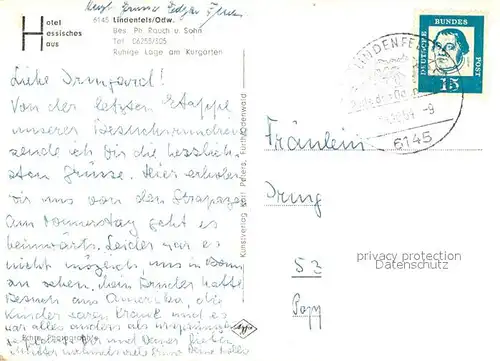 Hotel
Hessisches
Haus
6145 Lindenfels/Odw.
Bes. Ph. Rauch u. Sohn
Tel. 06255/305
Ruhige Lage am Kurgarten
Liebe Irmgard!
Von der letzten Etappe
unserer Besuchsrundreise
sende ich Dir die herzlich-
sten Grüsse. Hier erholen
wir uns von den Strapazen
Am Donnerstag geht es
heimwärts. Leider war es
nicht möglich uns in Bonn
zu sehen. Mein Bruder hatte
Besuch aus Amerika, die
Kinder waren krank und es
war alles anders als ursprünglich
geplant. Dir und Deiner lieben
Mutter nochmals viele Grüsse Deine
Echte Fotographie
Agfa
Kunstverlag Karl Pfeifra, Fürth/Odenwald
LINDENFELS
-9
6145
DEUTSCHE
BUNDES
POST
15
Fräulein
Irmg
53
Popp
privacy protection
Datenschutz